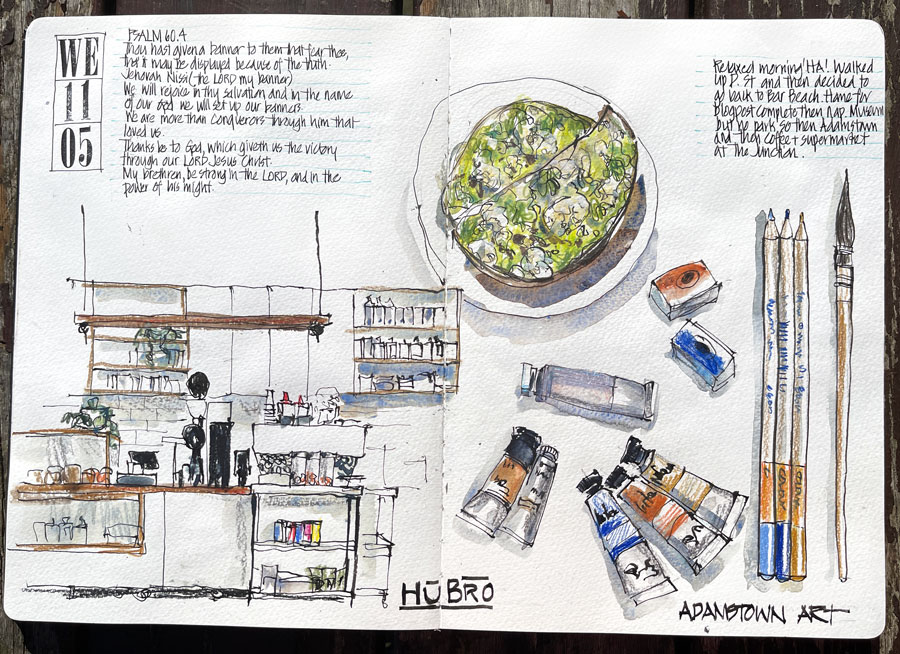 WE
11
05
PSALM 60.4
Thou hast given a banner to them that fear thee,
that it may be displayed because of the truth.
Jehovah Nissi (the LORD my banner)
We will rejoice in thy salvation and in the name
of our God we will set up our banners.
We are more than conquerors through him that
loved us.
Thanks be to God, which giveth us the victory
through our LORD Jesus Christ.
My brethren, be strong in the LORD, and in the
power of his might.
Relaxed morning! HA! Walked
up D. St and then decided to
walk to Bar Beach. Home for
Blogpost complete then nap. Museum
but no park so then Adamstown
and then coffee + supermarket
at The Junction.
HŪBRŌ
ADAMSTOWN ART